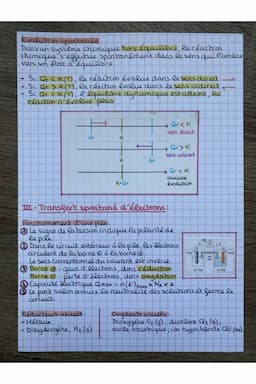 Evolution spontanée
Dans un système chimique hors équilibre, la réaction
chimique s'effectue spontanément dans le sens qui l'amène
vers son état d'équilibre.
→ Si Qr < K(T), la réaction évolue dans le sens direct
→ Si Qr > K(T), la réaction évolue dans le sens indirect
→ Si Qr = K(T), l'équilibre dynamique est atteint, la
réaction n'évolue plus
Qr
K
Qr < K
sens direct
K
Qr > K
sens indirect
K=Qr
Qr = K
aucune
évolution
III - Transfert spontané d'électrons :
Fonctionnement d'une pile
① Le signe de la tension indique la polarité de
la pile.
② Dans le circuit extérieur à la pile, les électrons
circulent de la borne ⊖ à la borne ⊕.
Le sens conventionnel du courant est inversé.
③ Borne ⊕ : gain d'électrons, donc réduction
Borne ⊖ : perte d'électrons, donc oxydation
④ Capacité électrique
⑤ Le pont salin assure la neutralité des solutions et ferme le
circuit.
Réducteurs usuels
Oxydants usuels
- Métaux
- Dihydrogène, H₂ (g)
Dioxygène O₂ (g) ; dichlore Cl₂ (g) ;
acide ascorbique ; ion hypochlorite ClO⁻